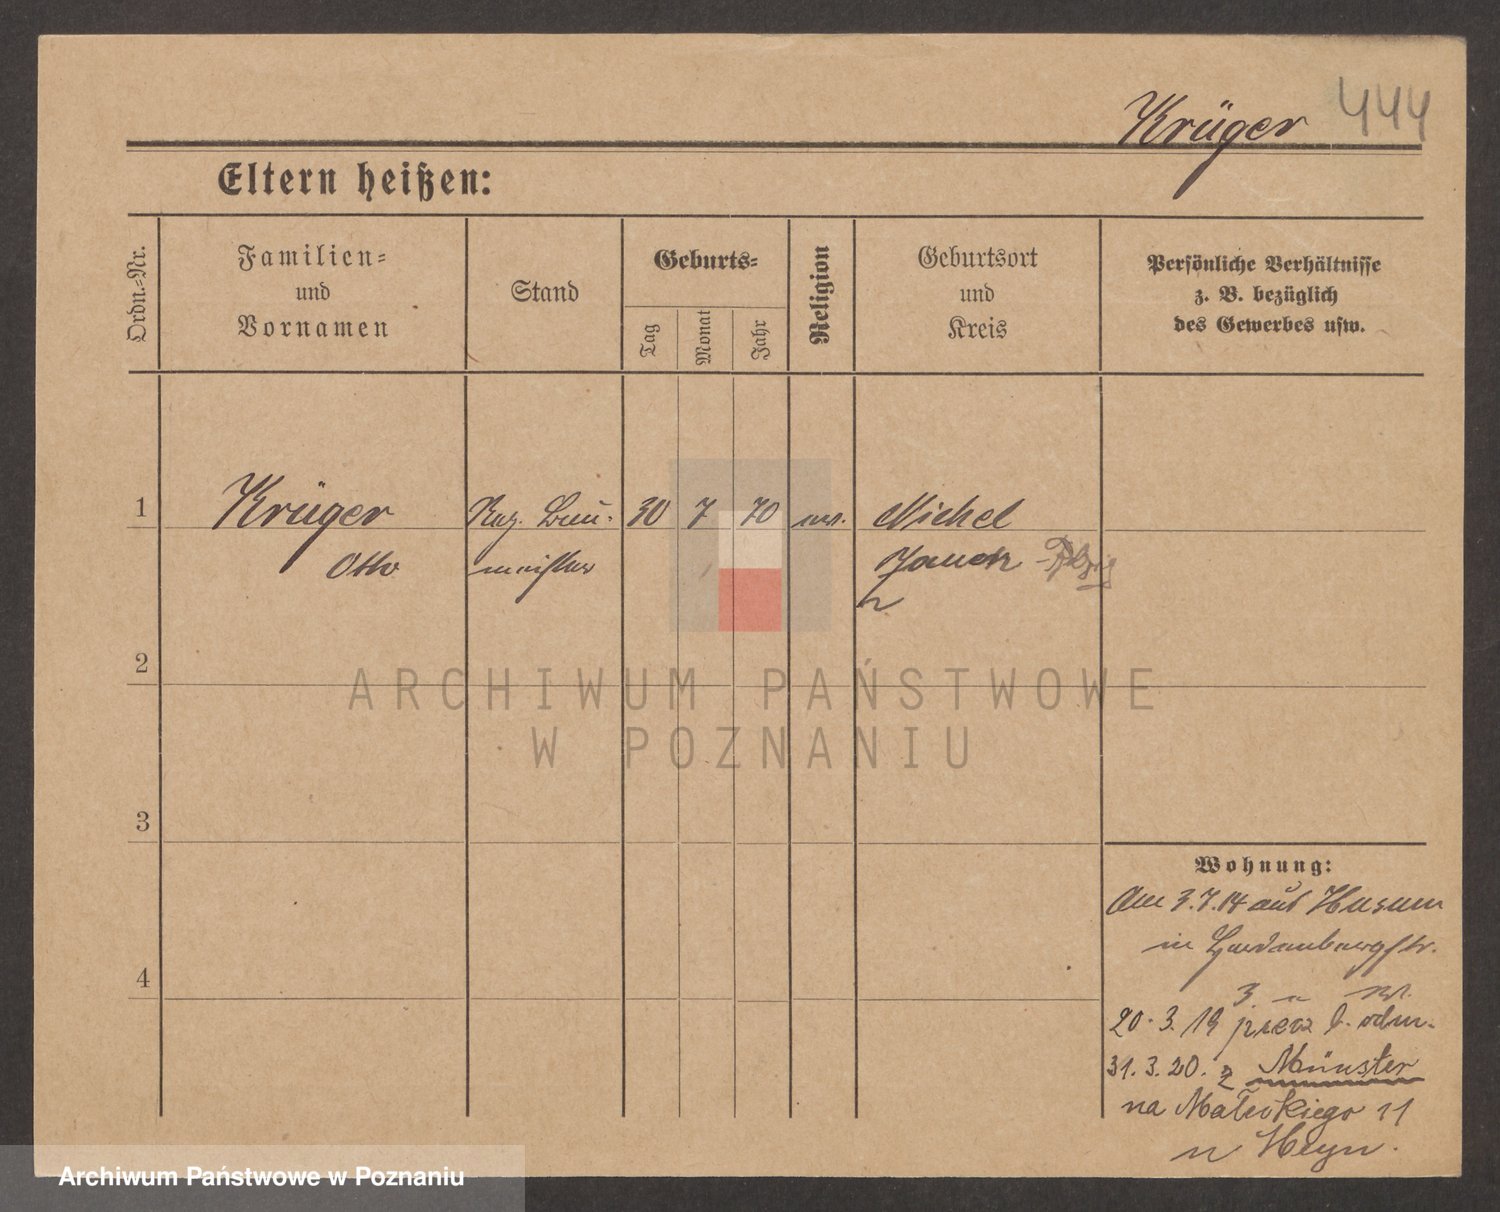 Krüger 444
Eltern heißen:
Ordn.-Nr.
Familien-
und
Vornamen
Stand
Geburts-
Tag
Monat
Jahr
Religion
Geburtsort
und
Kreis
Persönliche Verhältnisse
z. B. bezüglich
des Gewerbes usw.
1
Krüger
Otto
Reg. Bau-
meister
30
7
70
ev.
Nickel
2
3
4
Wohnung:
Am 3.7.14 aus Husum
in
3
20. 3. 19 precz
31. 3. 20. z Münster
na Małeckiego 11
u Heyn.
ARCHIWUM PAŃSTWOWE
W POZNANIU
Archiwum Państwowe w Poznaniu